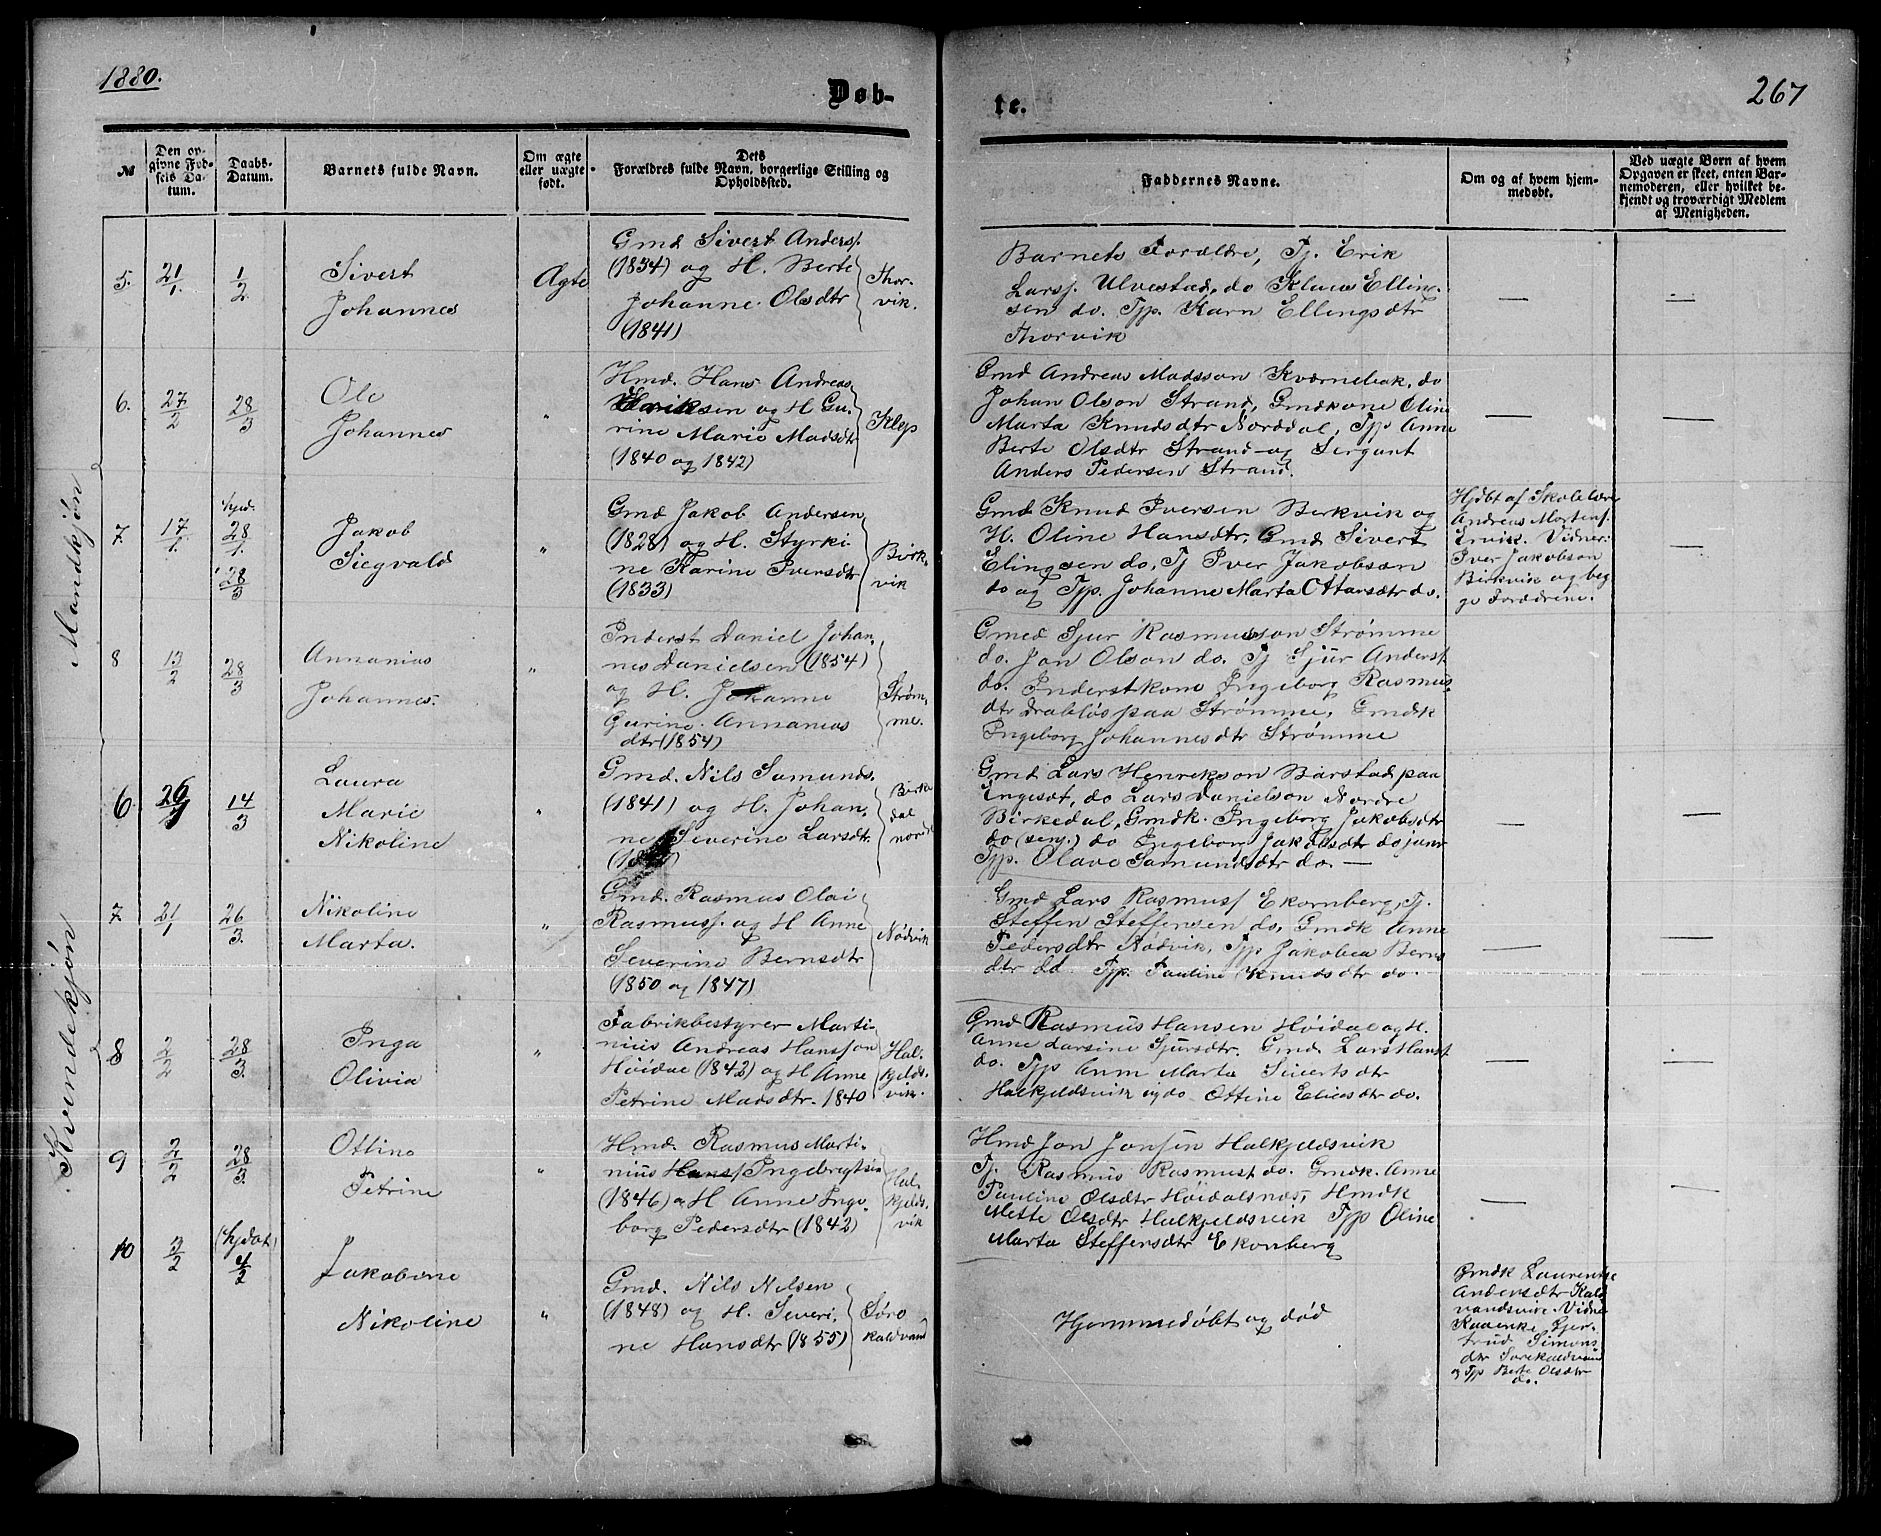 1880.
Døb-
te.
267
№
Den op-
givne Fød-
sels Da-
tum.
Daabs-
Datum.
Barnets fulde Navn.
Om ægte
eller uægte
født.
Dets
Forældres fulde Navn, borgerlige Stilling og
Opholdssted.
Faddernes Navne.
Om og af hvem hjem-
medøbt.
Ved uægte Børn af hvem
Opgaven er skeet, enten Bar-
nemoderen, eller hvilket be-
kjendt og troværdigt Medlem
af Menigheden.
Mandkjøn
5. 21/1. 1/2
Sivert
Johannes
Ægte
Gmd Sivert Anders.
(1834) og H. Berte
Johanne Olsdtr
(1841)
Thor-
vik.
Barnets Forældre, Tj. Erik
Larss. Ulvestad, do Klaus Elling-
sen do. Tjp. Karn Ellingsdtr
Thorvik
6. 27/2 28/3
Ole
Johannes
"
Hmd. Hans Andreas
Eriksen og H Gu-
rine Marie Madsdtr
(1840 og 1842)
Klep
Gmd Andreas Madsson Kværnebak, do
Johan Olson Strand, Gmdkone Oline
Marta Knudsdtr Norddal, Tjp Anne
Berte Olsdtr Strand og Sergant
Anders Pedersen Strand.
7. 17/1. hjd. 28/1. 28/3
Jakob
Siegvald
"
Gmd Jakob Andersen
(1828) og H. Styrki-
ne Karine Iversdtr
(1833)
Birk-
vik
Gmd Knud Iversen Berkvik og
H. Oline Hansdtr, Gmd Sivert
Elingsen do, Tj Iver Jakobson
do og Tjp. Johanne Marta Ottarsdtr do.
Hjdbt af Skolelære
Andreas Mortens.
Ervik. Vidner:
Iver Jakobson
Birkvik og beg-
ge Forældrene.
8 13/2 28/3
Annanias
Johannes.
"
Inderst Daniel Johan-
nes Danielsen (1854)
og H. Johanne
Gurine Annanias
dtr (1854)
Strøm-
me.
Gmed Sjur Rasmusson Strømme
do. Jon Olson do. Tj Sjur Anders.
do. Inderstkone Ingeborg Rasmus-
dtr Drabløs paa Strømme, Gmdk
Ingeborg Johannesdtr Strømme
Kvindekjøn
6 26/1 14/3
Laura
Marie
Nikoline
"
Gmd. Nils Samunds.
(1841) og H. Johan-
ne Severine Larsdtr.
Birke
dal
nordre
Gmd Lars Henrikson Barstad paa
Engeset, do Lars Danielson Nordre
Birkedal, Gmdk. Ingeborg Jakobsdtr
do (senj.) do Ingeborg Jakobsdtr do junr
Tjp. Olave Samundsdtr do.
7 21/1 26/3.
Nikoline
Marta.
"
Gmd. Rasmus Olai
Rasmuss. og H Anne
Severine Bernsdtr
(1850 og 1847)
Nødvik
Gmd Lars Rasmuss Ekornberg, Tj.
Steffen Steffensen do, Gmdk Anne
Pedersdtr Nødvik, Tjp Jakobea Berns
dtr do. Tjp. Pauline Knudsdtr do.
8 2/2 28/3.
Inga
Olivia
"
Fabrikbestyrer Marti-
nius Andreas Hansson
Høidal (1842) og H Anne
Petrine Madsdtr. 1840
Hal-
kjelds-
vik.
Gmd Rasmus Hansen Høidal og H.
Anne Larsine Sjursdtr. Gmd. Lars Hans.
do. Tjp Anne Marta Siverts dtr
Halkjeldsvik og do Ottine Eliasdtr do.
9 2/2 28/3.
Ottine
Petrine
"
Hmd. Rasmus Marti-
nius Hans. Ingebregtsen
(1846) o H Anne Inge-
borg Pedersdtr (1842)
Hal-
kjelds-
vik
Hmd Jon Jonsen Halkjeldsvik
Tj. Rasmus Rasmuss do. Gmdk. Anne
Pauline Olsdtr Høidalsnes, Hmdk
Mette Olsdtr Halkjeldsvik Tjp Oline
Marta Steffensdtr Ekornberg
10 3/2 (hjdøbt) 4/2
Jakobine
Nikoline
"
Gmd. Nils Nilsen
(1848) og H. Severi-
ne Hansdtr (1855)
Søre
Kaldvand
Hjemmedøbt og død
Gmdk Laurentse
Andersdtr Kald
vandsvire. Vidne
Kaarenke Gjer-
trud Simons
dtr Sørekaldvand
og Tjp Berte Olsdtr
do.